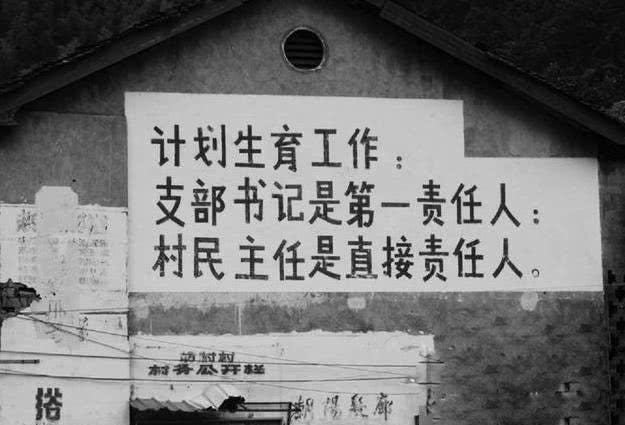 计划生育工作：
支部书记是第一责任人：
村民主任是直接责任人。
村务公开栏
朝阳发廊